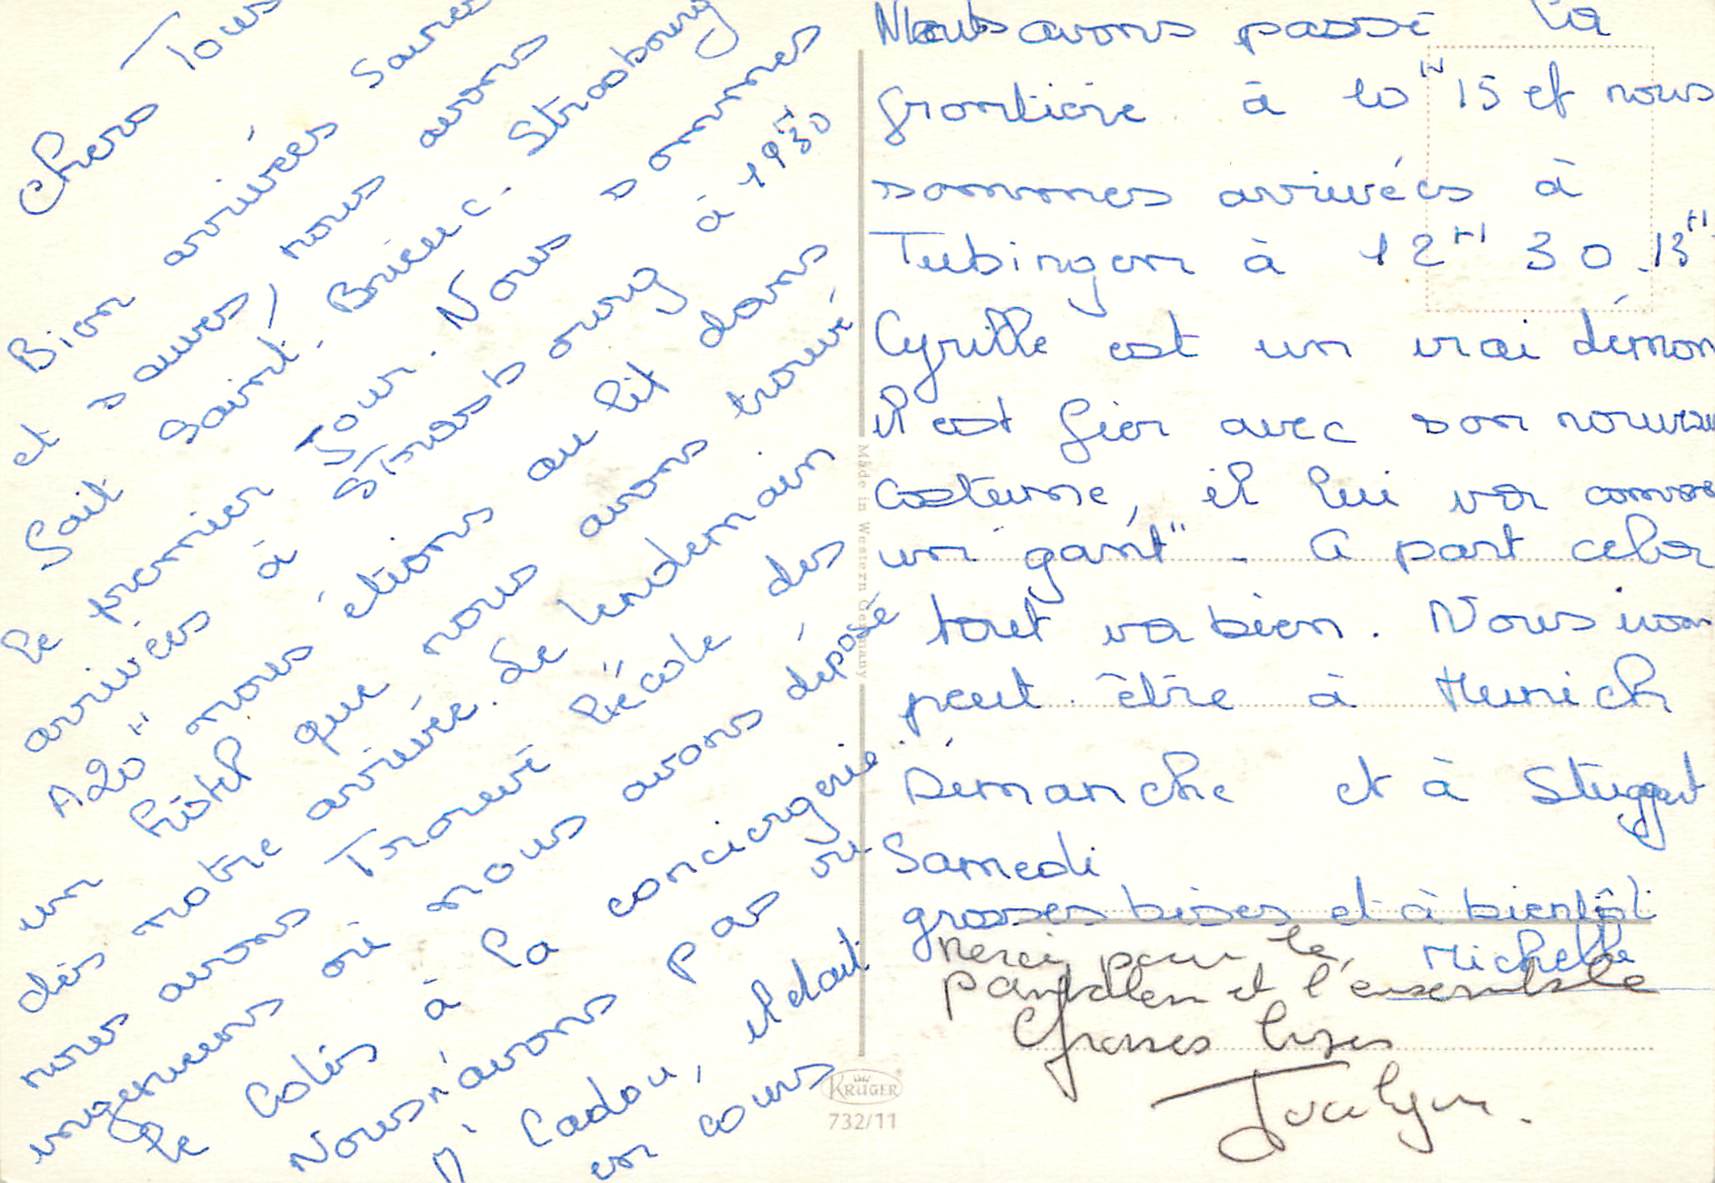 Chers Tous
Bien arrivées saines
et sauves, nous avons
fait Saint-Brieuc-Strasbourg
le premier Jour. Nous sommes
arrivées à Strasbourg à 19H30
A 20H nous étions au lit dans
un hôtel que nous avons trouvé
dès notre arrivée. Le lendemain
nous avons Trouvé l'école des
ingenieurs où nous avons déposé
le Colis à la conciergerie.
Nous n'avons pas vu
M' Cadou, il était
en cours
Nous avons passé la
frontière à 10H15 et nous
sommes arrivées à
Tubingen à 12H30 13H
Cyrille est un vrai démon
il est fier avec son nouveau
costume, il lui va comme
un gant". A part cela
tout va bien. Nous irons
peut être à Munich
Dimanche et à Stuggart
Samedi
grosses bises et à bientôt
Michelle
Merci pour le
pantalon et l'ensemble
Grosses bises
Jocelyne.
Made in Western Germany
KRÜGER
732/11